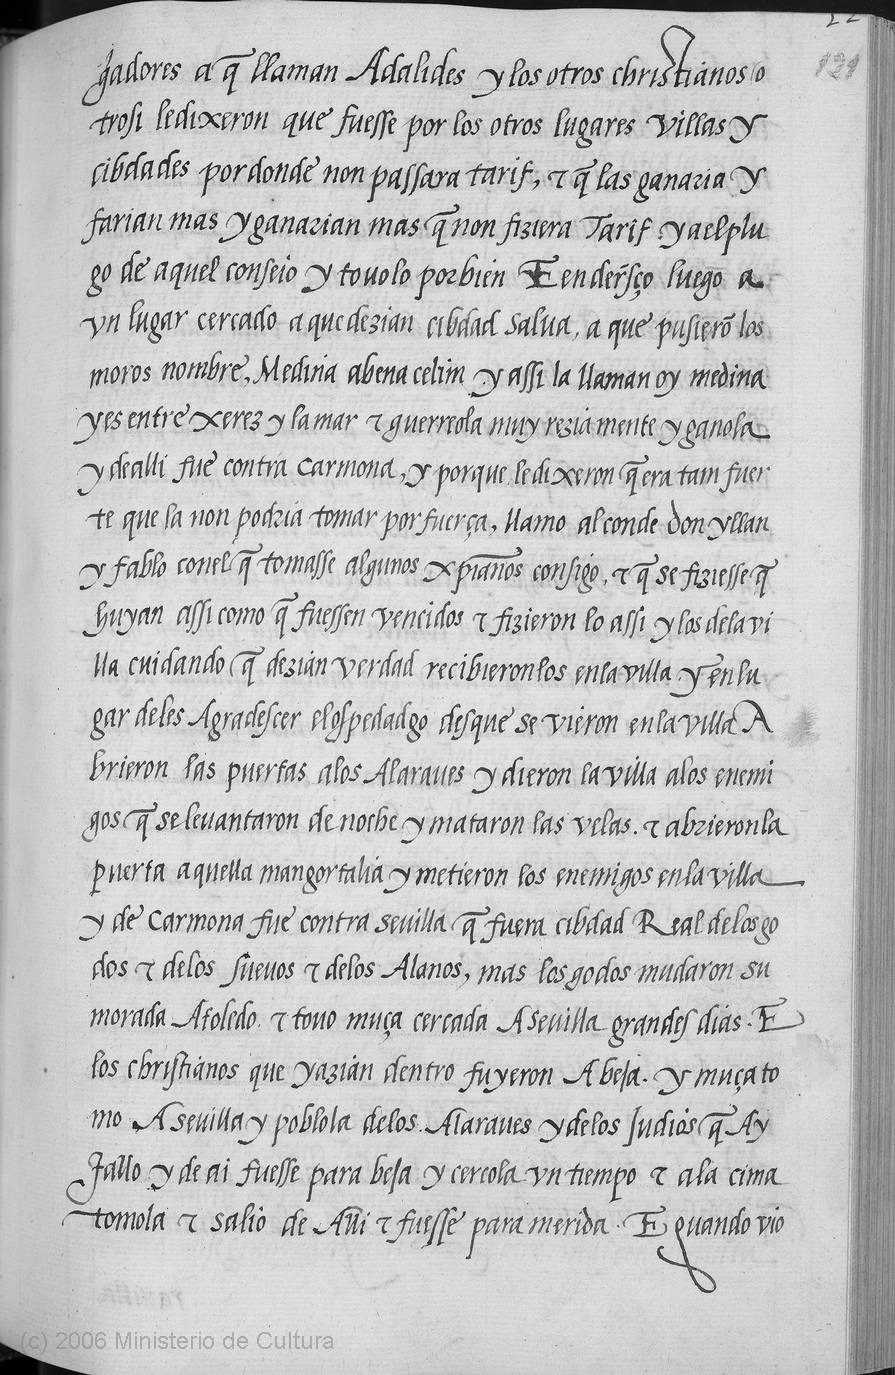 22
121
gadores a q̃ llaman Adalides y los otros christianos o
trosi ledixeron que fuesse por los otros lugares villas y
cibdades por donde non passara tarif, τ q̃ las ganaria y
farian mas y ganarian mas q̃ non fiziera Tarif y a el plu
go de aquel conseio y touolo por bien E enderẽsço luego a
vn lugar cercado a que dezian cibdad salua, a que pusierõ los
moros nombre, Medina abena celim y assi la llaman oy medina
y es entre xerez y la mar τ guerreola muy reziamente y ganola
y de alli fue contra carmona, y porque le dixeron q̃ era tam fuer
te que la non podria tomar por fuerça, llamo al conde don yllan
y fablo conel q̃ tomasse algunos xp̃ianos consigo, τ q̃ se fiziesse q̃
huyan assi como q̃ fuessen vencidos τ fizieron lo assi y los dela vi
lla cuidando q̃ dezian verdad recibieronlos enla villa y en lu
gar deles Agradescer el ospedadgo desque se vieron enla villa A
brieron las puertas alos Alaraues y dieron la villa alos enemi
gos q̃ se leuantaron de noche y mataron las velas. τ abrieron la
puerta aquella mangortalia y metieron los enemigos enla villa
y de Carmona fue contra seuilla q̃ fuera cibdad Real delos go
dos τ delos sueuos τ delos Alanos, mas los godos mudaron su
morada Atoledo. τ touo muça cercada A seuilla grandes dias. E
los christianos que yazian dentro fuyeron A beja. y muça to
mo A seuilla y poblola delos. Alaraues y delos Judios q̃ Ay
fallo y de ai fuesse para beja y cercola vn tiempo τ ala cima
tomola τ salio de Aĩ τ fuesse para merida. E quando vio
(c) 2006 Ministerio de Cultura